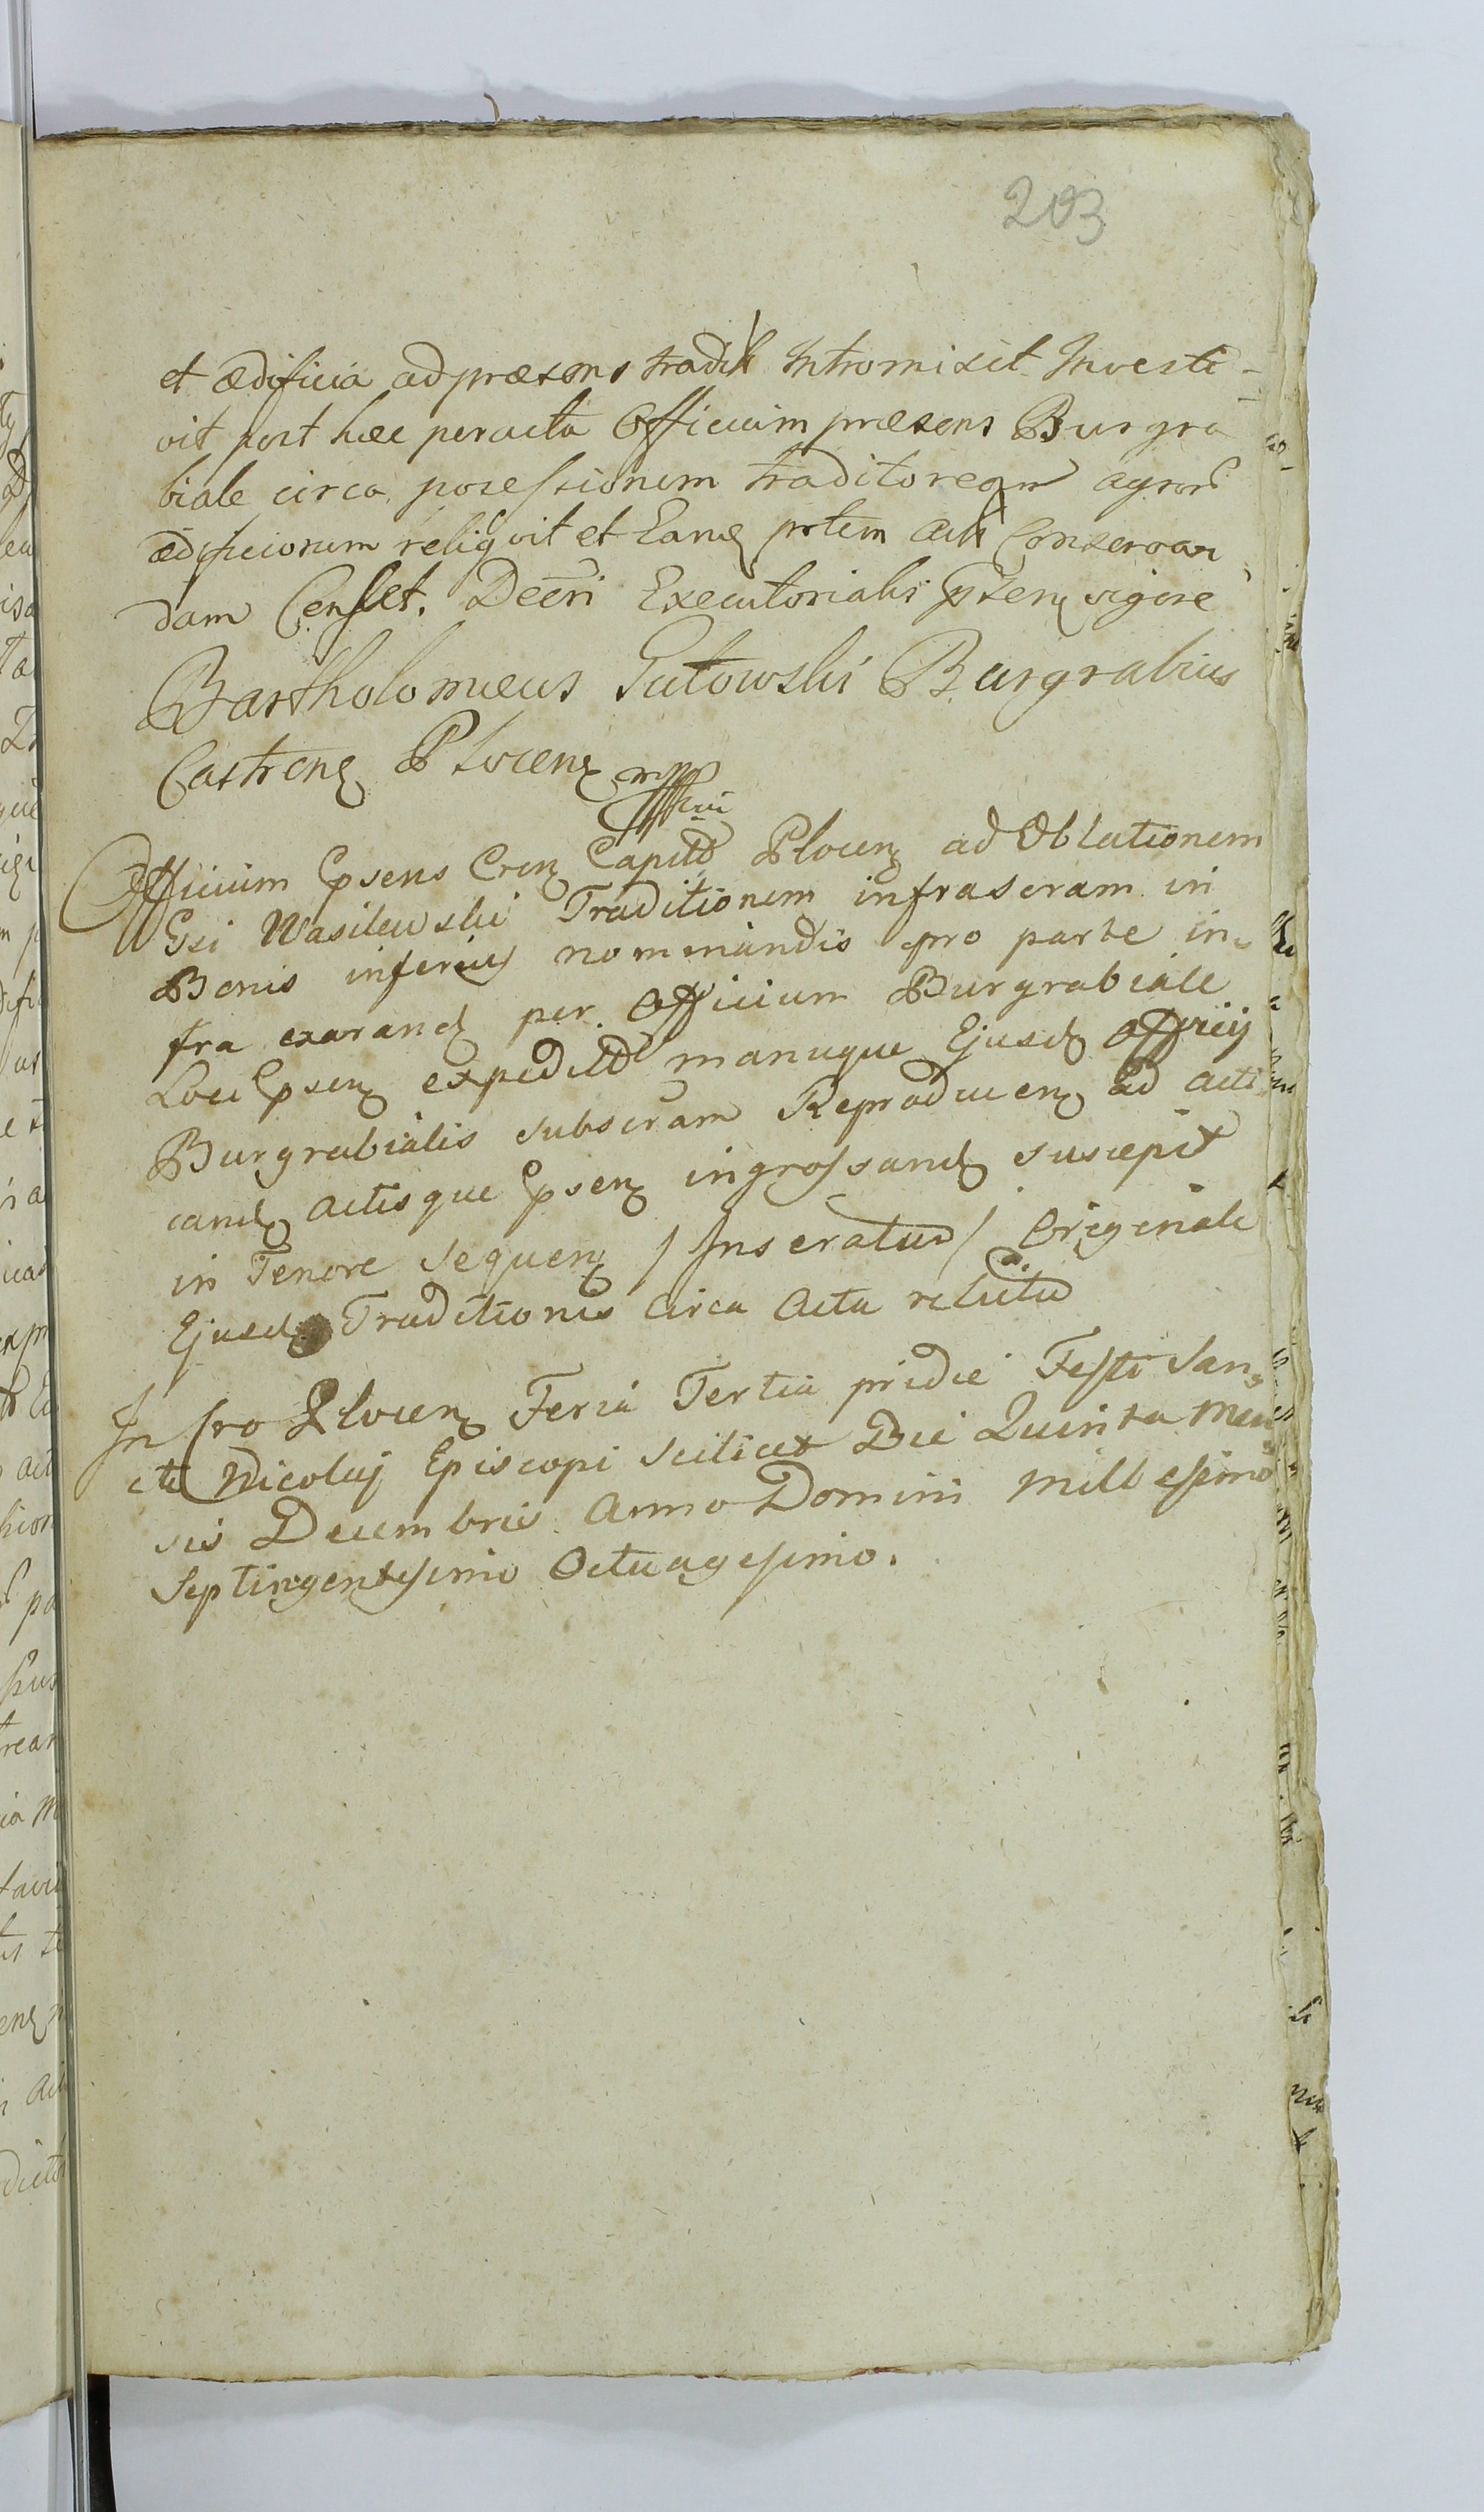 203
et ædificia ad præsens tradit Intromisit Investi-
vit post hæc peracta Officium præsens Burgra
biale circa possessionem traditoreqm agror
ædificiorum reliqvit et Eanq prtem acti Conservan
dam Censet. Decri Executorialis psenq vigore
Bartholomæus Gutowski Burgrabius
Castrenq Plocenq mpp
Officii
Officium psens Crenq Capitl Plocenq ad Oblationem
Gsi Wasilewski Traditionem infrascram in
Bonis inferius nominandis pro parte in-
fra exarandq per Officium Burgrabiale
Loci psenq expedit manuque Ejusdq Officij
Burgrabialis subscram Reproducenq ad acti
candq actisque psenq ingrossandq suscepit
in Tenore sequenq / Inseratur / Originali
Ejusdq Traditionis circa Acta relicta
In Cro Plocenq Feria Tertia pridie Festi San-
cti Nicolaj Episcopi scilicet Die Quinta Men-
sis Decembris Anno Domini Millesimo
Septingentesimo Octuagesimo.